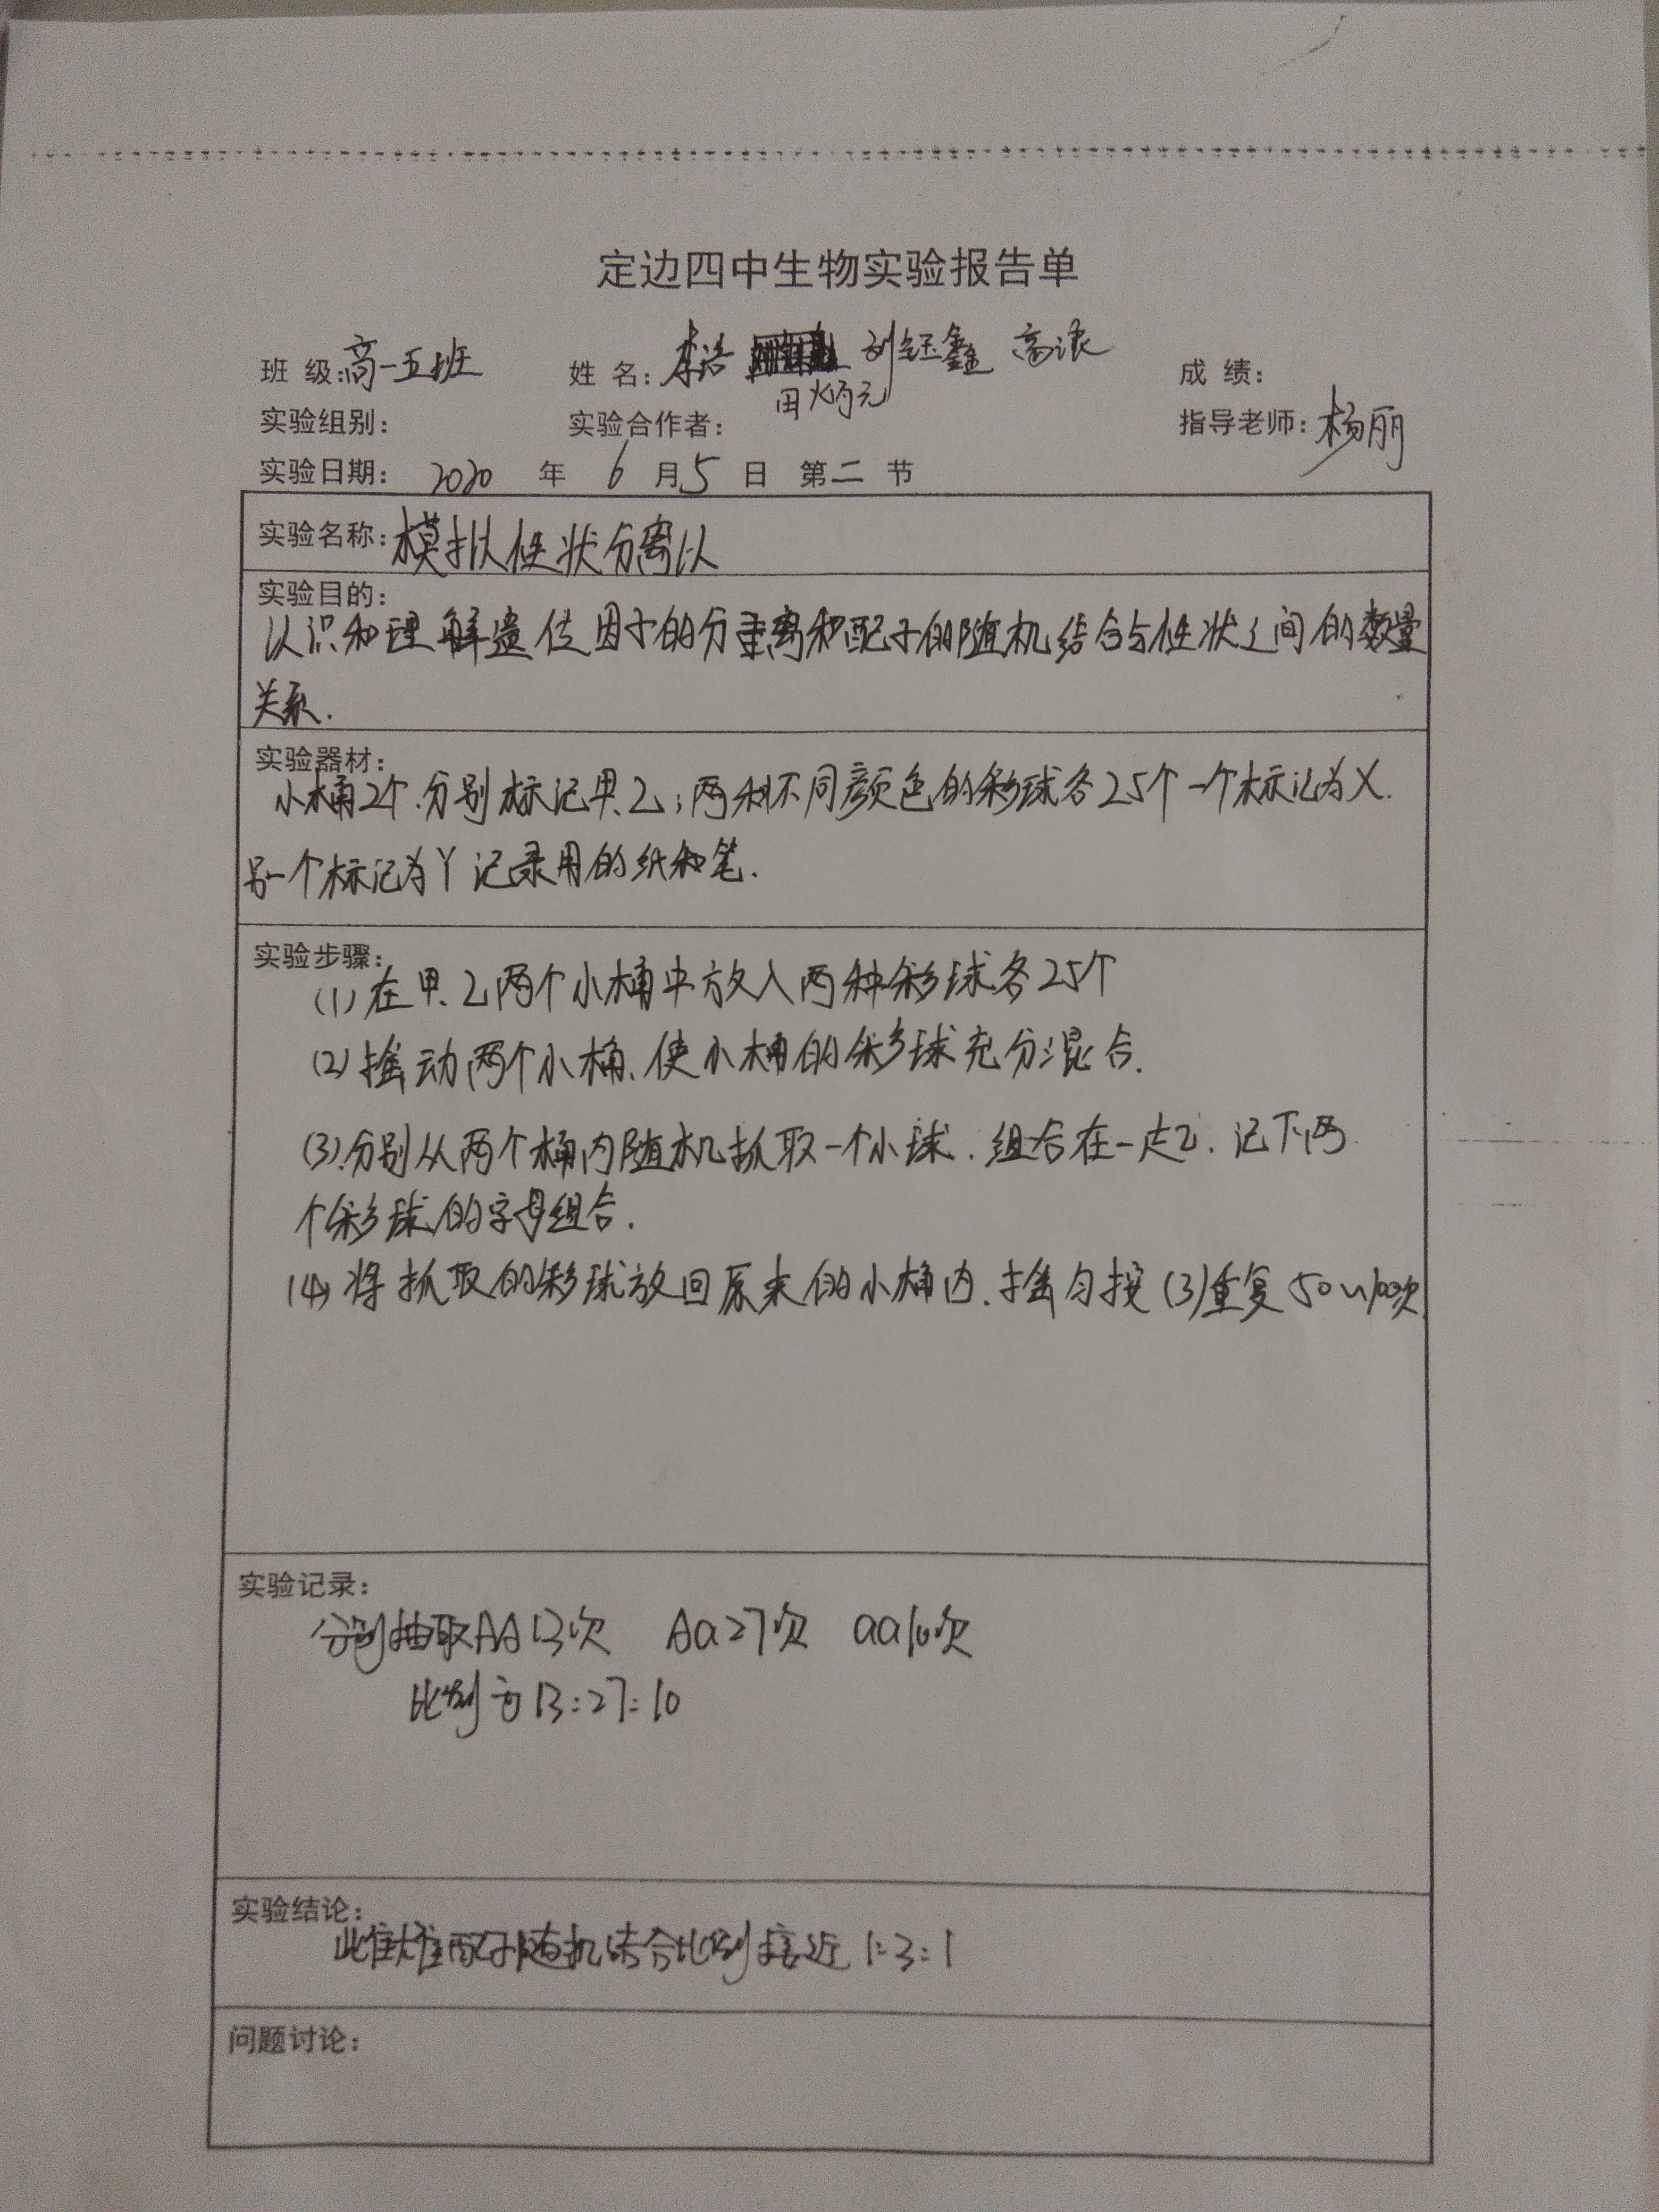 定边四中生物实验报告单
班 级:高一五班 姓 名:李浩 刘钰鑫 高浪 成 绩:
田炳元
实验组别: 实验合作者: 指导老师:杨丽
实验日期: 2020 年 6 月 5 日 第二 节
实验名称:模拟性状分离以
实验目的:
认识和理解遗传因子的分离和配子的随机结合与性状之间的数量
关系.
实验器材:
小桶2个.分别标记甲.乙;两种不同颜色的彩球各25个一个标记为X.
另一个标记为Y 记录用的纸和笔.
实验步骤:
(1)在甲.乙两个小桶中放入两种彩球各25个
(2)摇动两个小桶.使小桶的彩球充分混合.
(3).分别从两个桶内随机抓取一个小球.组合在一起.记下两
个彩球的字母组合.
(4)将抓取的彩球放回原来的小桶内.摇匀按(3)重复50~100次
实验记录:
分别抽取AA13次 Aa27次 aa10次
比例为13:27:10
实验结论:
此雌雄配子随机结合比例接近1:3:1
问题讨论: